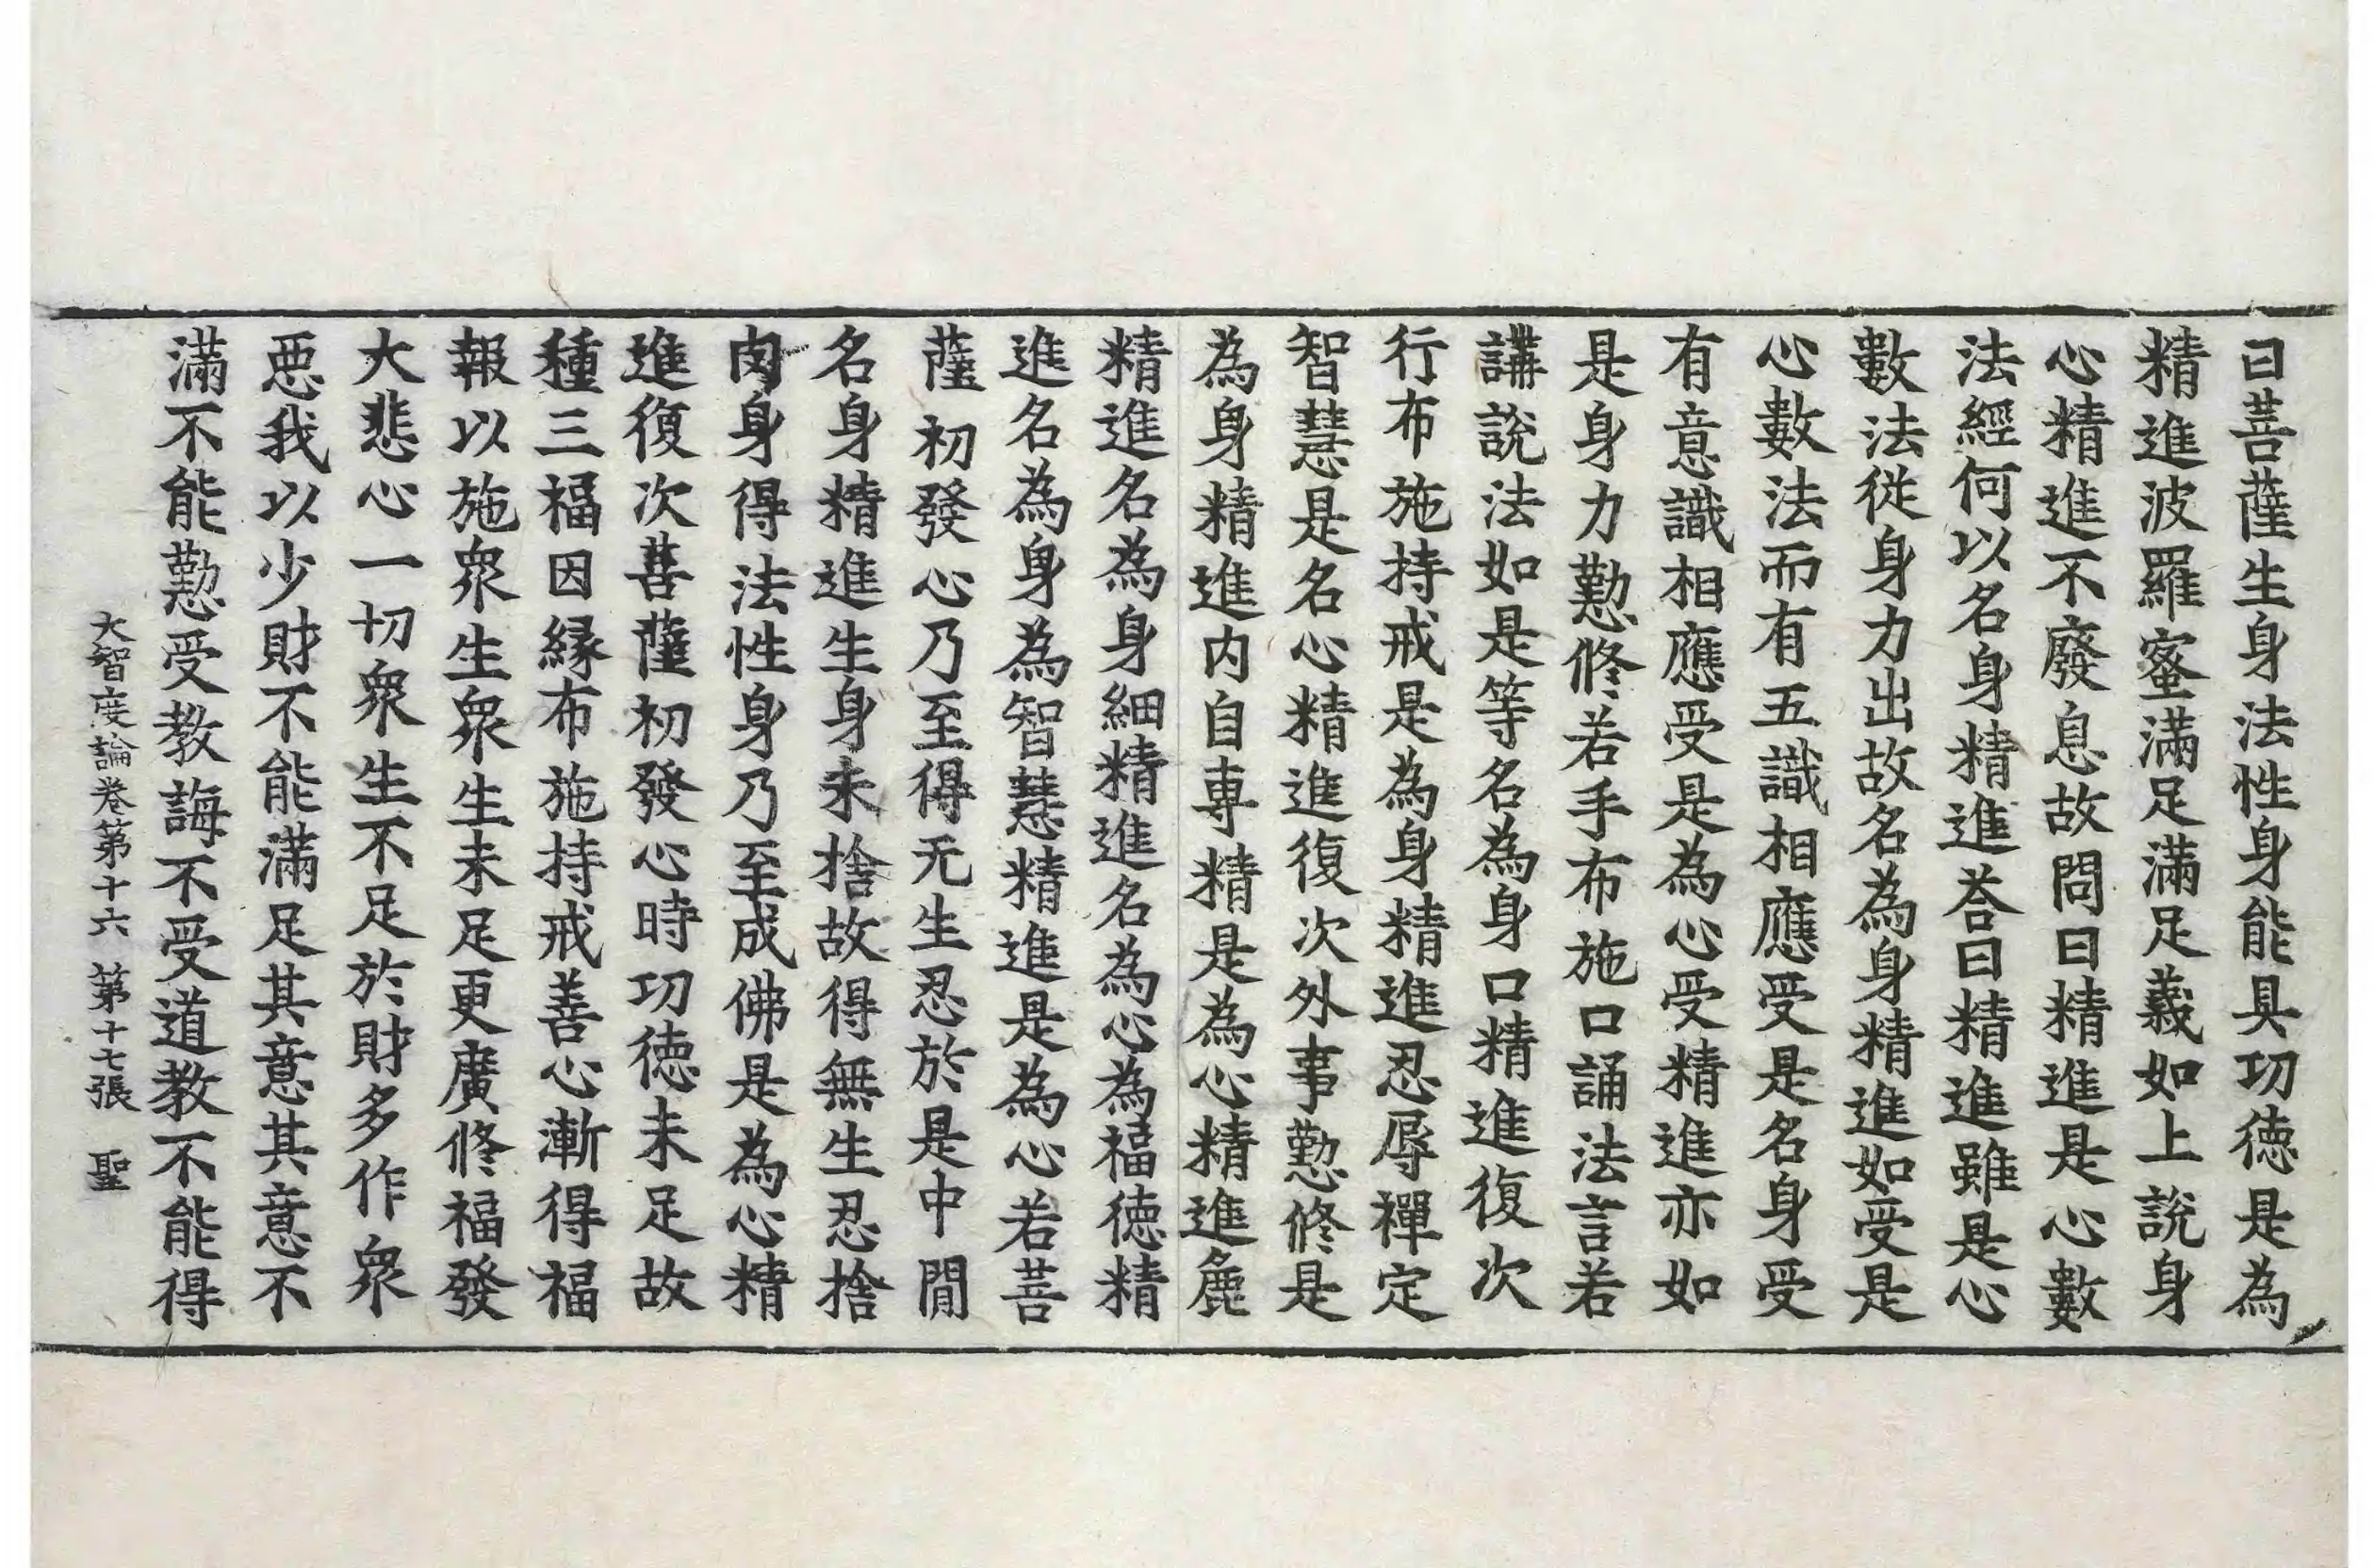 曰菩薩生身法性身能具功徳是為
精進波羅蜜滿足滿足義如上說身
心精進不廢息故問曰精進是心數
法經何以名身精進荅曰精進雖是心
數法從身力出故名為身精進如受是
心數法而有五識相應受是名身受
有意識相應受是為心受精進亦如
是身力懃修若手布施口誦法言若
講說法如是等名為身口精進復次
行布施持戒是為身精進忍辱禪定
智慧是名心精進復次外事懃修是
為身精進内自專精是為心精進麁
精進名為身細精進名為心為福徳精
進名為身為智慧精進是為心若菩
薩初發心乃至得无生忍於是中閒
名身精進生身未捨故得無生忍捨
肉身得法性身乃至成佛是為心精
進復次菩薩初發心時功徳未足故
種三福因縁布施持戒善心漸得福
報以施衆生衆生未足更廣修福發
大悲心一切衆生不足於財多作衆
惡我以少財不能滿足其意其意不
滿不能懃受教誨不受道教不能得
大智度論卷第十六 第十七張 聖